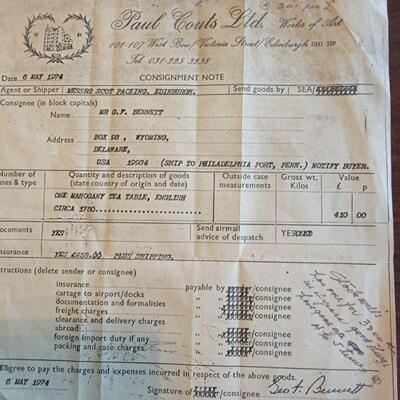 @ 20% per £
Paul Couts Ltd. Works of Art
101-107 West Bow/Victoria Street/Edinburgh EH1 2JP
Tel. 031-225 3238
Date 6 MAY 1974 CONSIGNMENT NOTE
Agent or Shipper MESSRS SCOT PACKING, EDINBURGH. Send goods by SEA/
Consignee (in block capitals)
Name MR G.F. BENNETT
Address BOX 98 , WYOMING,
DELAWARE,
USA 19934 (SHIP TO PHILADELPHIA PORT, PENN.) NOTIFY BUYER.
Number of Quantity and description of goods Outside case Gross wt. Value
cases & type (state country of origin and date) measurements Kilos £ p
ONE MAHOGANY TEA TABLE, ENGLISH
CIRCA 1750. 410 00
Documents YES Send airmail YES
advice of despatch
Insurance YES £458.00 PLUS SHIPPING.
Instructions (delete sender or consignee)
insurance payable by /consignee
cartage to airport/docks " /consignee
documentation and formalities " /consignee
freight charges " /consignee
clearance and delivery charges
abroad: " /consignee
foreign import duty if any " /consignee
packing and case charges. " /consignee
I agree to pay the charges and expenses incurred in respect of the above goods.
6 MAY 1974 Signature of /consignee Geo F. Bennett